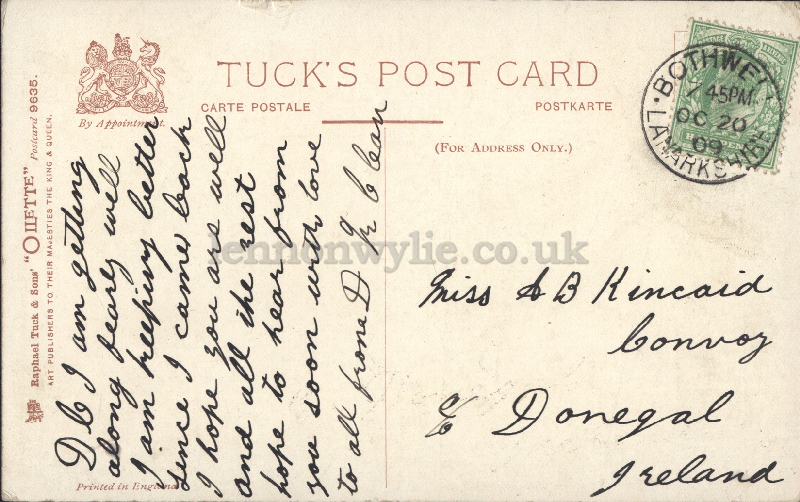 TUCK'S POST CARD
CARTE POSTALE
POSTKARTE
By Appointment.
(FOR ADDRESS ONLY.)
Raphael Tuck & Sons' "OILETTE" Postcard 9635.
ART PUBLISHERS TO THEIR MAJESTIES THE KING & QUEEN.
Printed in England
BOTHWELL
7 45PM
OC 20
09
LANARKSHIRE
D C I am getting
along fearly well
I am keeping better
sence I came back
I hope you are well
and all the rest
hope to hear from
you soon with love
to all frone D Mc Clean
Miss A B Kincaid
Convoy
Co Donegal
Ireland
lennonwylie.co.uk